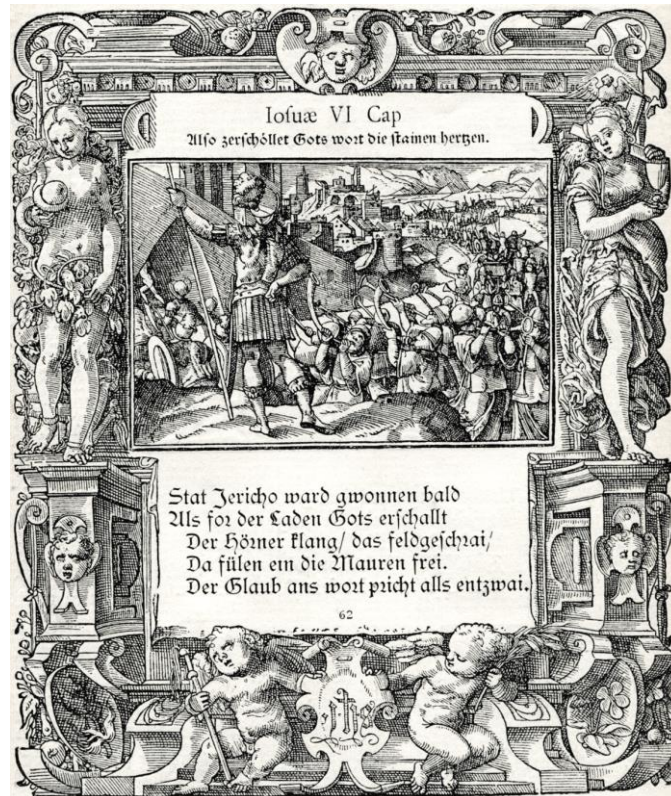 Iosuæ VI Cap
Also zerschöllet Gots wort die stainen hertzen.
Stat Jericho ward gwonnen bald
Als for der Laden Gots erschallt
Der Hörner klang/ das feldgeschrai/
Da fülen ein die Mauren frei.
Der Glaub ans wort pricht alls entzwai.
62